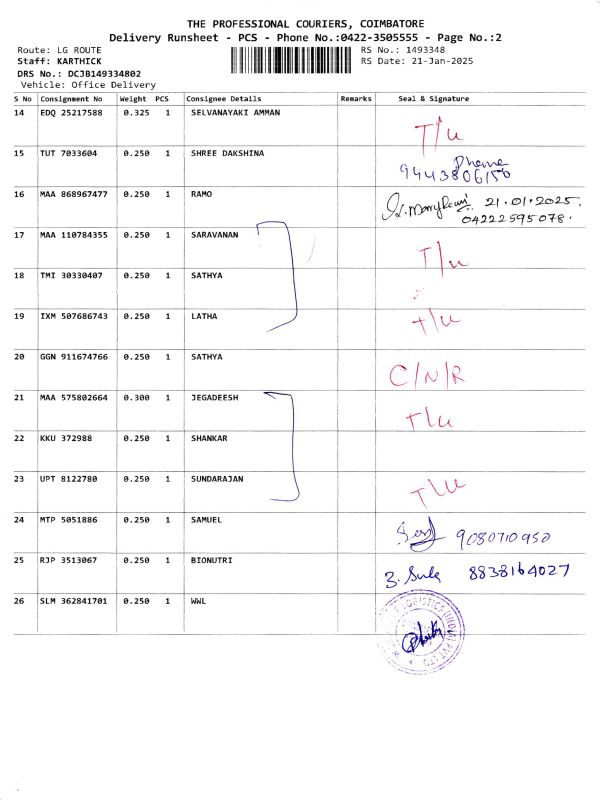 THE PROFESSIONAL COURIERS, COIMBATORE
Delivery Runsheet - PCS - Phone No.:0422-3505555 - Page No.:2
Route: LG ROUTE RS No.: 1493348
Staff: KARTHICK RS Date: 21-Jan-2025
DRS No.: DCJB149334802
Vehicle: Office Delivery
S No Consignment No Weight PCS Consignee Details Remarks Seal & Signature
14 EDQ 25217588 0.325 1 SELVANAYAKI AMMAN T/u
15 TUT 7033604 0.250 1 SHREE DAKSHINA
9443806150
16 MAA 868967477 0.250 1 RAMO 21.01.2025.
04222595078.
17 MAA 110784355 0.250 1 SARAVANAN T/u
18 TMI 30330407 0.250 1 SATHYA
19 IXM 507686743 0.250 1 LATHA T/u
20 GGN 911674766 0.250 1 SATHYA C/N/R
21 MAA 575802664 0.300 1 JEGADEESH T/u
22 KKU 372988 0.250 1 SHANKAR
23 UPT 8122780 0.250 1 SUNDARAJAN T/u
24 MTP 5051886 0.250 1 SAMUEL 9080710950
25 RJP 3513067 0.250 1 BIONUTRI 8838164027
26 SLM 362841701 0.250 1 WWL
LOGISTICS (INDIA) PVT LTD